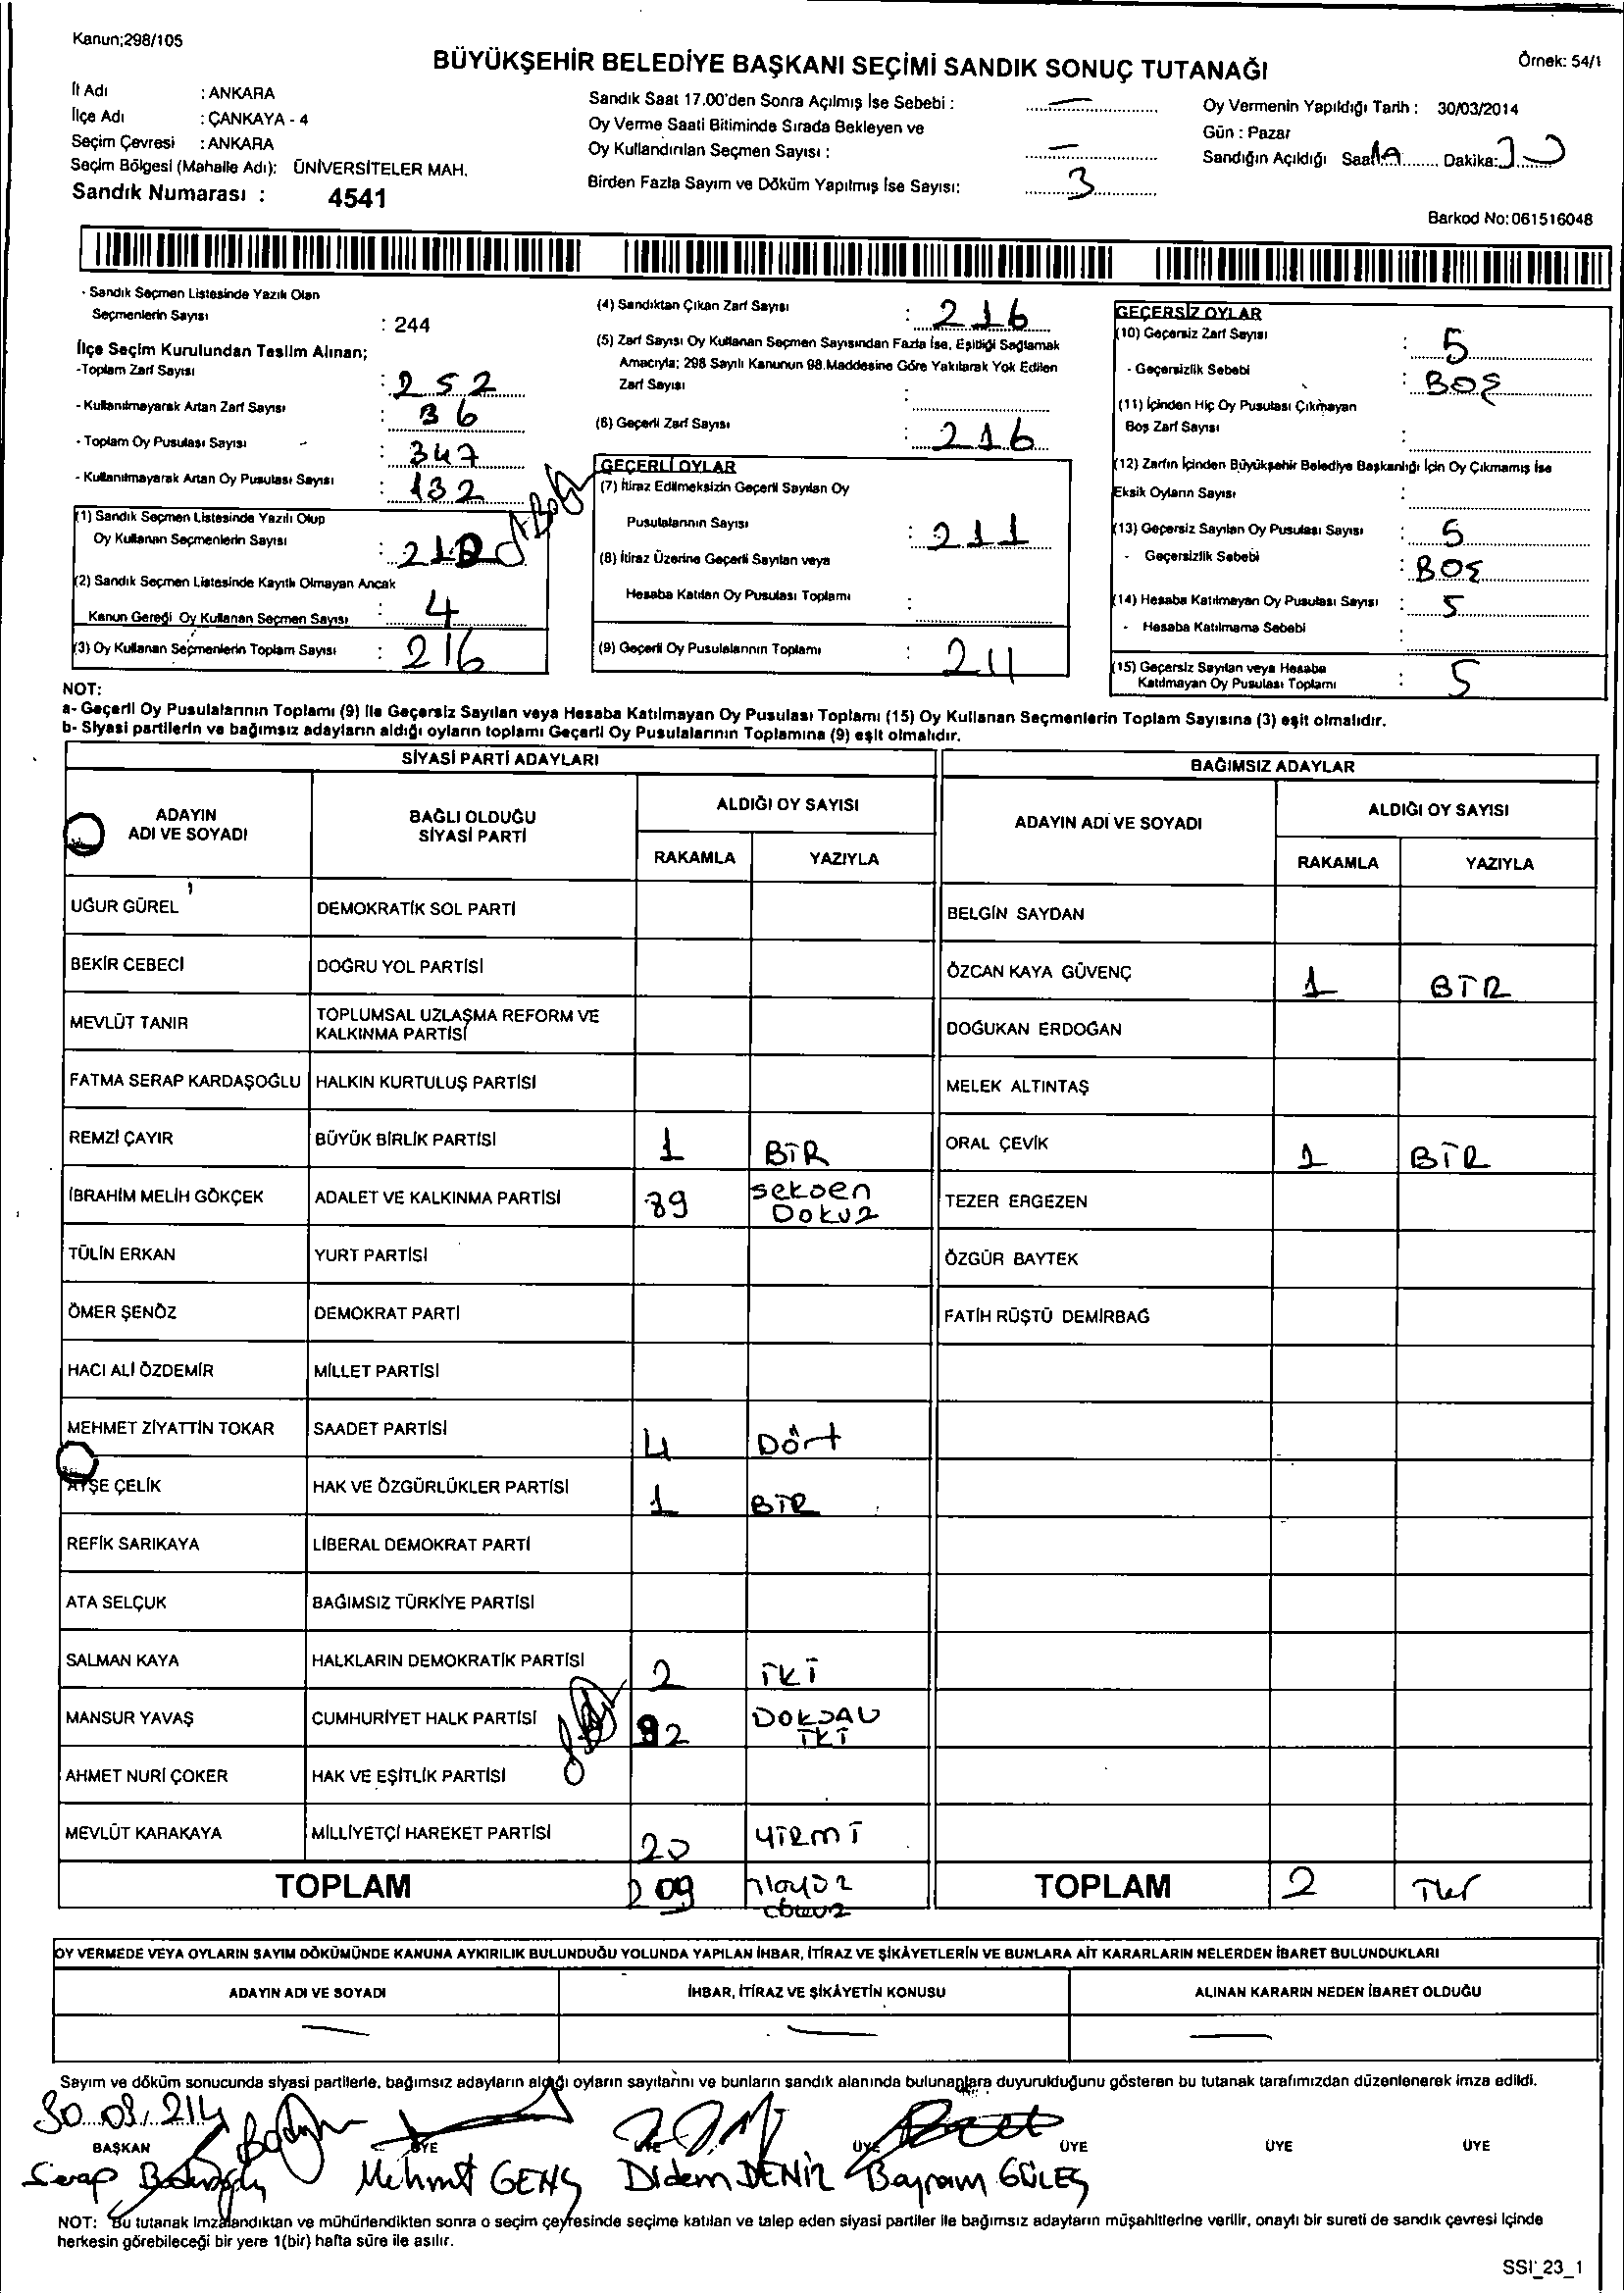 Kanun;298/105
BÜYÜKŞEHİR BELEDİYE BAŞKANI SEÇİMİ SANDIK SONUÇ TUTANAĞI
Örnek: 54/1
İl Adı : ANKARA
İlçe Adı : ÇANKAYA - 4
Seçim Çevresi : ANKARA
Seçim Bölgesi (Mahalle Adı): ÜNİVERSİTELER MAH.
Sandık Numarası : 4541
Sandık Saat 17.00'den Sonra Açılmış İse Sebebi : —
Oy Verme Saati Bitiminde Sırada Bekleyen ve
Oy Kullandırılan Seçmen Sayısı : —
Birden Fazla Sayım ve Döküm Yapılmış İse Sayısı: 3
Oy Vermenin Yapıldığı Tarih : 30/03/2014
Gün : Pazar
Sandığın Açıldığı Saat Dakika:
Barkod No: 061516048
- Sandık Seçmen Listesinde Yazılı Olan
Seçmenlerin Sayısı : 244
İlçe Seçim Kurulundan Teslim Alınan;
-Toplam Zarf Sayısı : 252
- Kullanılmayarak Artan Zarf Sayısı : 36
- Toplam Oy Pusulası Sayısı : 347
- Kullanılmayarak Artan Oy Pusulası Sayısı : 132
(1) Sandık Seçmen Listesinde Yazılı Olup
Oy Kullanan Seçmenlerin Sayısı :
(2) Sandık Seçmen Listesinde Kayıtlı Olmayan Ancak
Kanun Gereği Oy Kullanan Seçmen Sayısı : 4
(3) Oy Kullanan Seçmenlerin Toplam Sayısı : 216
(4) Sandıktan Çıkan Zarf Sayısı : 216
(5) Zarf Sayısı Oy Kullanan Seçmen Sayısından Fazla İse, Eşitliği Sağlamak
Amacıyla; 298 Sayılı Kanunun 98.Maddesine Göre Yakılarak Yok Edilen
Zarf Sayısı :
(6) Geçerli Zarf Sayısı : 216
GEÇERLİ OYLAR
(7) İtiraz Edilmeksizin Geçerli Sayılan Oy
Pusulalarının Sayısı : 211
(8) İtiraz Üzerine Geçerli Sayılan veya
Hesaba Katılan Oy Pusulası Toplamı :
(9) Geçerli Oy Pusulalarının Toplamı : 211
GEÇERSİZ OYLAR
(10) Geçersiz Zarf Sayısı : 5
- Geçersizlik Sebebi : BOŞ
(11) İçinden Hiç Oy Pusulası Çıkmayan
Boş Zarf Sayısı :
(12) Zarfın İçinden Büyükşehir Belediye Başkanlığı İçin Oy Çıkmamış İse
Eksik Oyların Sayısı :
(13) Geçersiz Sayılan Oy Pusulası Sayısı : 5
- Geçersizlik Sebebi : BOŞ
(14) Hesaba Katılmayan Oy Pusulası Sayısı : 5
- Hesaba Katılmama Sebebi :
(15) Geçersiz Sayılan veya Hesaba
Katılmayan Oy Pusulası Toplamı : 5
NOT:
a- Geçerli Oy Pusulalarının Toplamı (9) ile Geçersiz Sayılan veya Hesaba Katılmayan Oy Pusulası Toplamı (15) Oy Kullanan Seçmenlerin Toplam Sayısına (3) eşit olmalıdır.
b- Siyasi partilerin ve bağımsız adayların aldığı oyların toplamı Geçerli Oy Pusulalarının Toplamına (9) eşit olmalıdır.
SİYASİ PARTİ ADAYLARI
BAĞIMSIZ ADAYLAR
ADAYIN ADI VE SOYADI
BAĞLI OLDUĞU SİYASİ PARTİ
ALDIĞI OY SAYISI
RAKAMLA YAZIYLA
ADAYIN ADI VE SOYADI
ALDIĞI OY SAYISI
RAKAMLA YAZIYLA
UĞUR GÜREL DEMOKRATİK SOL PARTİ BELGİN SAYDAN
BEKİR CEBECİ DOĞRU YOL PARTİSİ ÖZCAN KAYA GÜVENÇ 1 BİR
MEVLÜT TANIR TOPLUMSAL UZLAŞMA REFORM VE KALKINMA PARTİSİ DOĞUKAN ERDOĞAN
FATMA SERAP KARDAŞOĞLU HALKIN KURTULUŞ PARTİSİ MELEK ALTINTAŞ
REMZİ ÇAYIR BÜYÜK BİRLİK PARTİSİ 1 BİR ORAL ÇEVİK 1 BİR
İBRAHİM MELİH GÖKÇEK ADALET VE KALKINMA PARTİSİ 89 seksen Dokuz TEZER ERGEZEN
TÜLİN ERKAN YURT PARTİSİ ÖZGÜR BAYTEK
ÖMER ŞENÖZ DEMOKRAT PARTİ FATİH RÜŞTÜ DEMİRBAĞ
HACI ALİ ÖZDEMİR MİLLET PARTİSİ
MEHMET ZİYATTİN TOKAR SAADET PARTİSİ 4 Dört
AYŞE ÇELİK HAK VE ÖZGÜRLÜKLER PARTİSİ 1 BİR
REFİK SARIKAYA LİBERAL DEMOKRAT PARTİ
ATA SELÇUK BAĞIMSIZ TÜRKİYE PARTİSİ
SALMAN KAYA HALKLARIN DEMOKRATİK PARTİSİ 2 İKİ
MANSUR YAVAŞ CUMHURİYET HALK PARTİSİ 92 DOKSAN İKİ
AHMET NURİ ÇOKER HAK VE EŞİTLİK PARTİSİ
MEVLÜT KARAKAYA MİLLİYETÇİ HAREKET PARTİSİ 20 YİRMİ
TOPLAM 209 TOPLAM 2
OY VERMEDE VEYA OYLARIN SAYIM DÖKÜMÜNDE KANUNA AYKIRILIK BULUNDUĞU YOLUNDA YAPILAN İHBAR, İTİRAZ VE ŞİKÂYETLERİN VE BUNLARA AİT KARARLARIN NELERDEN İBARET BULUNDUKLARI
ADAYIN ADI VE SOYADI İHBAR, İTİRAZ VE ŞİKÂYETİN KONUSU ALINAN KARARIN NEDEN İBARET OLDUĞU
— — —
Sayım ve döküm sonucunda siyasi partilerle, bağımsız adayların aldığı oyların sayılarını ve bunların sandık alanında bulunanlara duyurulduğunu gösteren bu tutanak tarafımızdan düzenlenerek imza edildi.
30.03.214
BAŞKAN ÜYE ÜYE ÜYE ÜYE ÜYE ÜYE
Serap Mehmet GENÇ Didem DENİZ Bayram GÜLEŞ
NOT: Bu tutanak imzalandıktan ve mühürlendikten sonra o seçim çevresinde seçime katılan ve talep eden siyasi partiler ile bağımsız adayların müşahitlerine verilir, onaylı bir sureti de sandık çevresi içinde
herkesin görebileceği bir yere 1(bir) hafta süre ile asılır.
SSİ_23_1